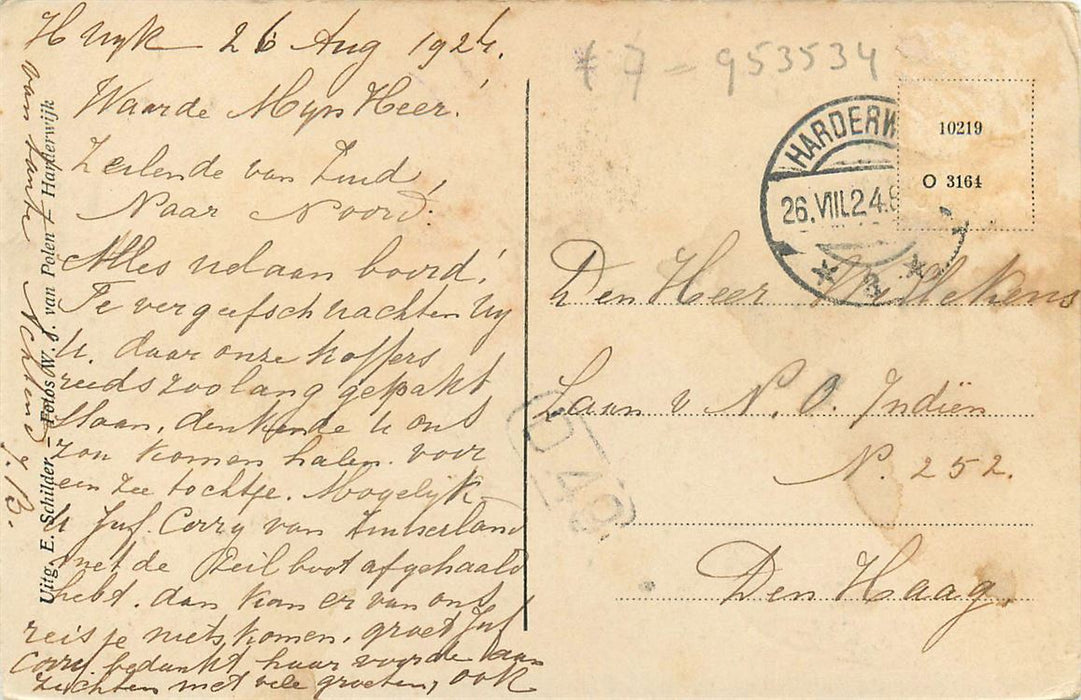 H wyk 26 Aug 1924.
Waarde Mijn Heer!
Zeilende van Zuid,
Naar Noord.
Alles wel aan boord!
Te vergeefsch wachten wy
U. daar onze koffers
reeds zoolang gepakt
staan, denkende U ons
zou komen halen. voor
een zee tochtje. Mogelijk
U Juf. Corry van Zuiderland
met de Zeil boot afgehaald
hebt. dan kan er van ons
reisje niets komen. groet Juf
Corry, bedankt haar voor de aan
zichten met vele groeten, ook
van tante J. B.
Uitg. E. Schilder. — Fotos W. J. van Polen — Harderwijk
# 7 = 953534
HARDERW
26.VIII.24.8
2
10219
O 3164
D 49
Den Heer
Laan v N. O. Indiën
N. 252.
Den Haag.